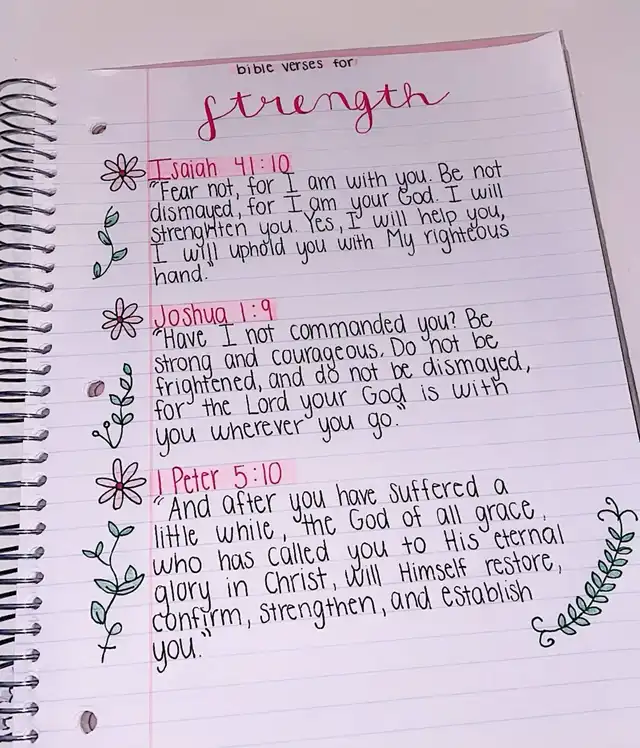 bible verses for
strength
Isaiah 41:10
"Fear not, for I am with you. Be not
dismayed, for I am your God. I will
strenghten you. Yes, I will help you,
I will uphold you with My righteous
hand."
Joshua 1:9
"Have I not commanded you? Be
strong and courageous. Do not be
frightened, and do not be dismayed,
for the Lord your God is with
you wherever you go."
1 Peter 5:10
"And after you have suffered a
little while, the God of all grace,
who has called you to His eternal
glory in Christ, will Himself restore,
confirm, strengthen, and establish
you."